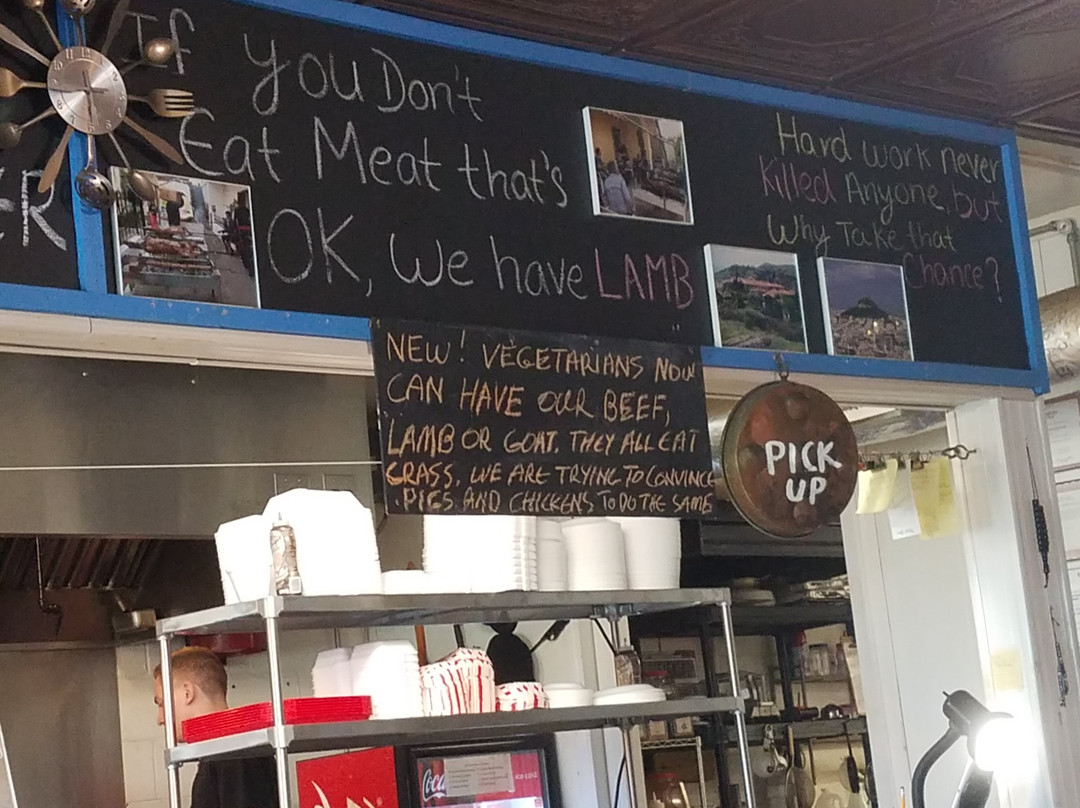 If you Don't
Eat Meat that's
OK, we have LAMB
ER
Hard work never
Killed Anyone, but
Why Take that
Chance?
NEW! VEGETARIANS NOW
CAN HAVE OUR BEEF,
LAMB OR GOAT. THEY ALL EAT
GRASS. WE ARE TRYING TO CONVINCE
PIGS AND CHICKENS TO DO THE SAME
PICK
UP